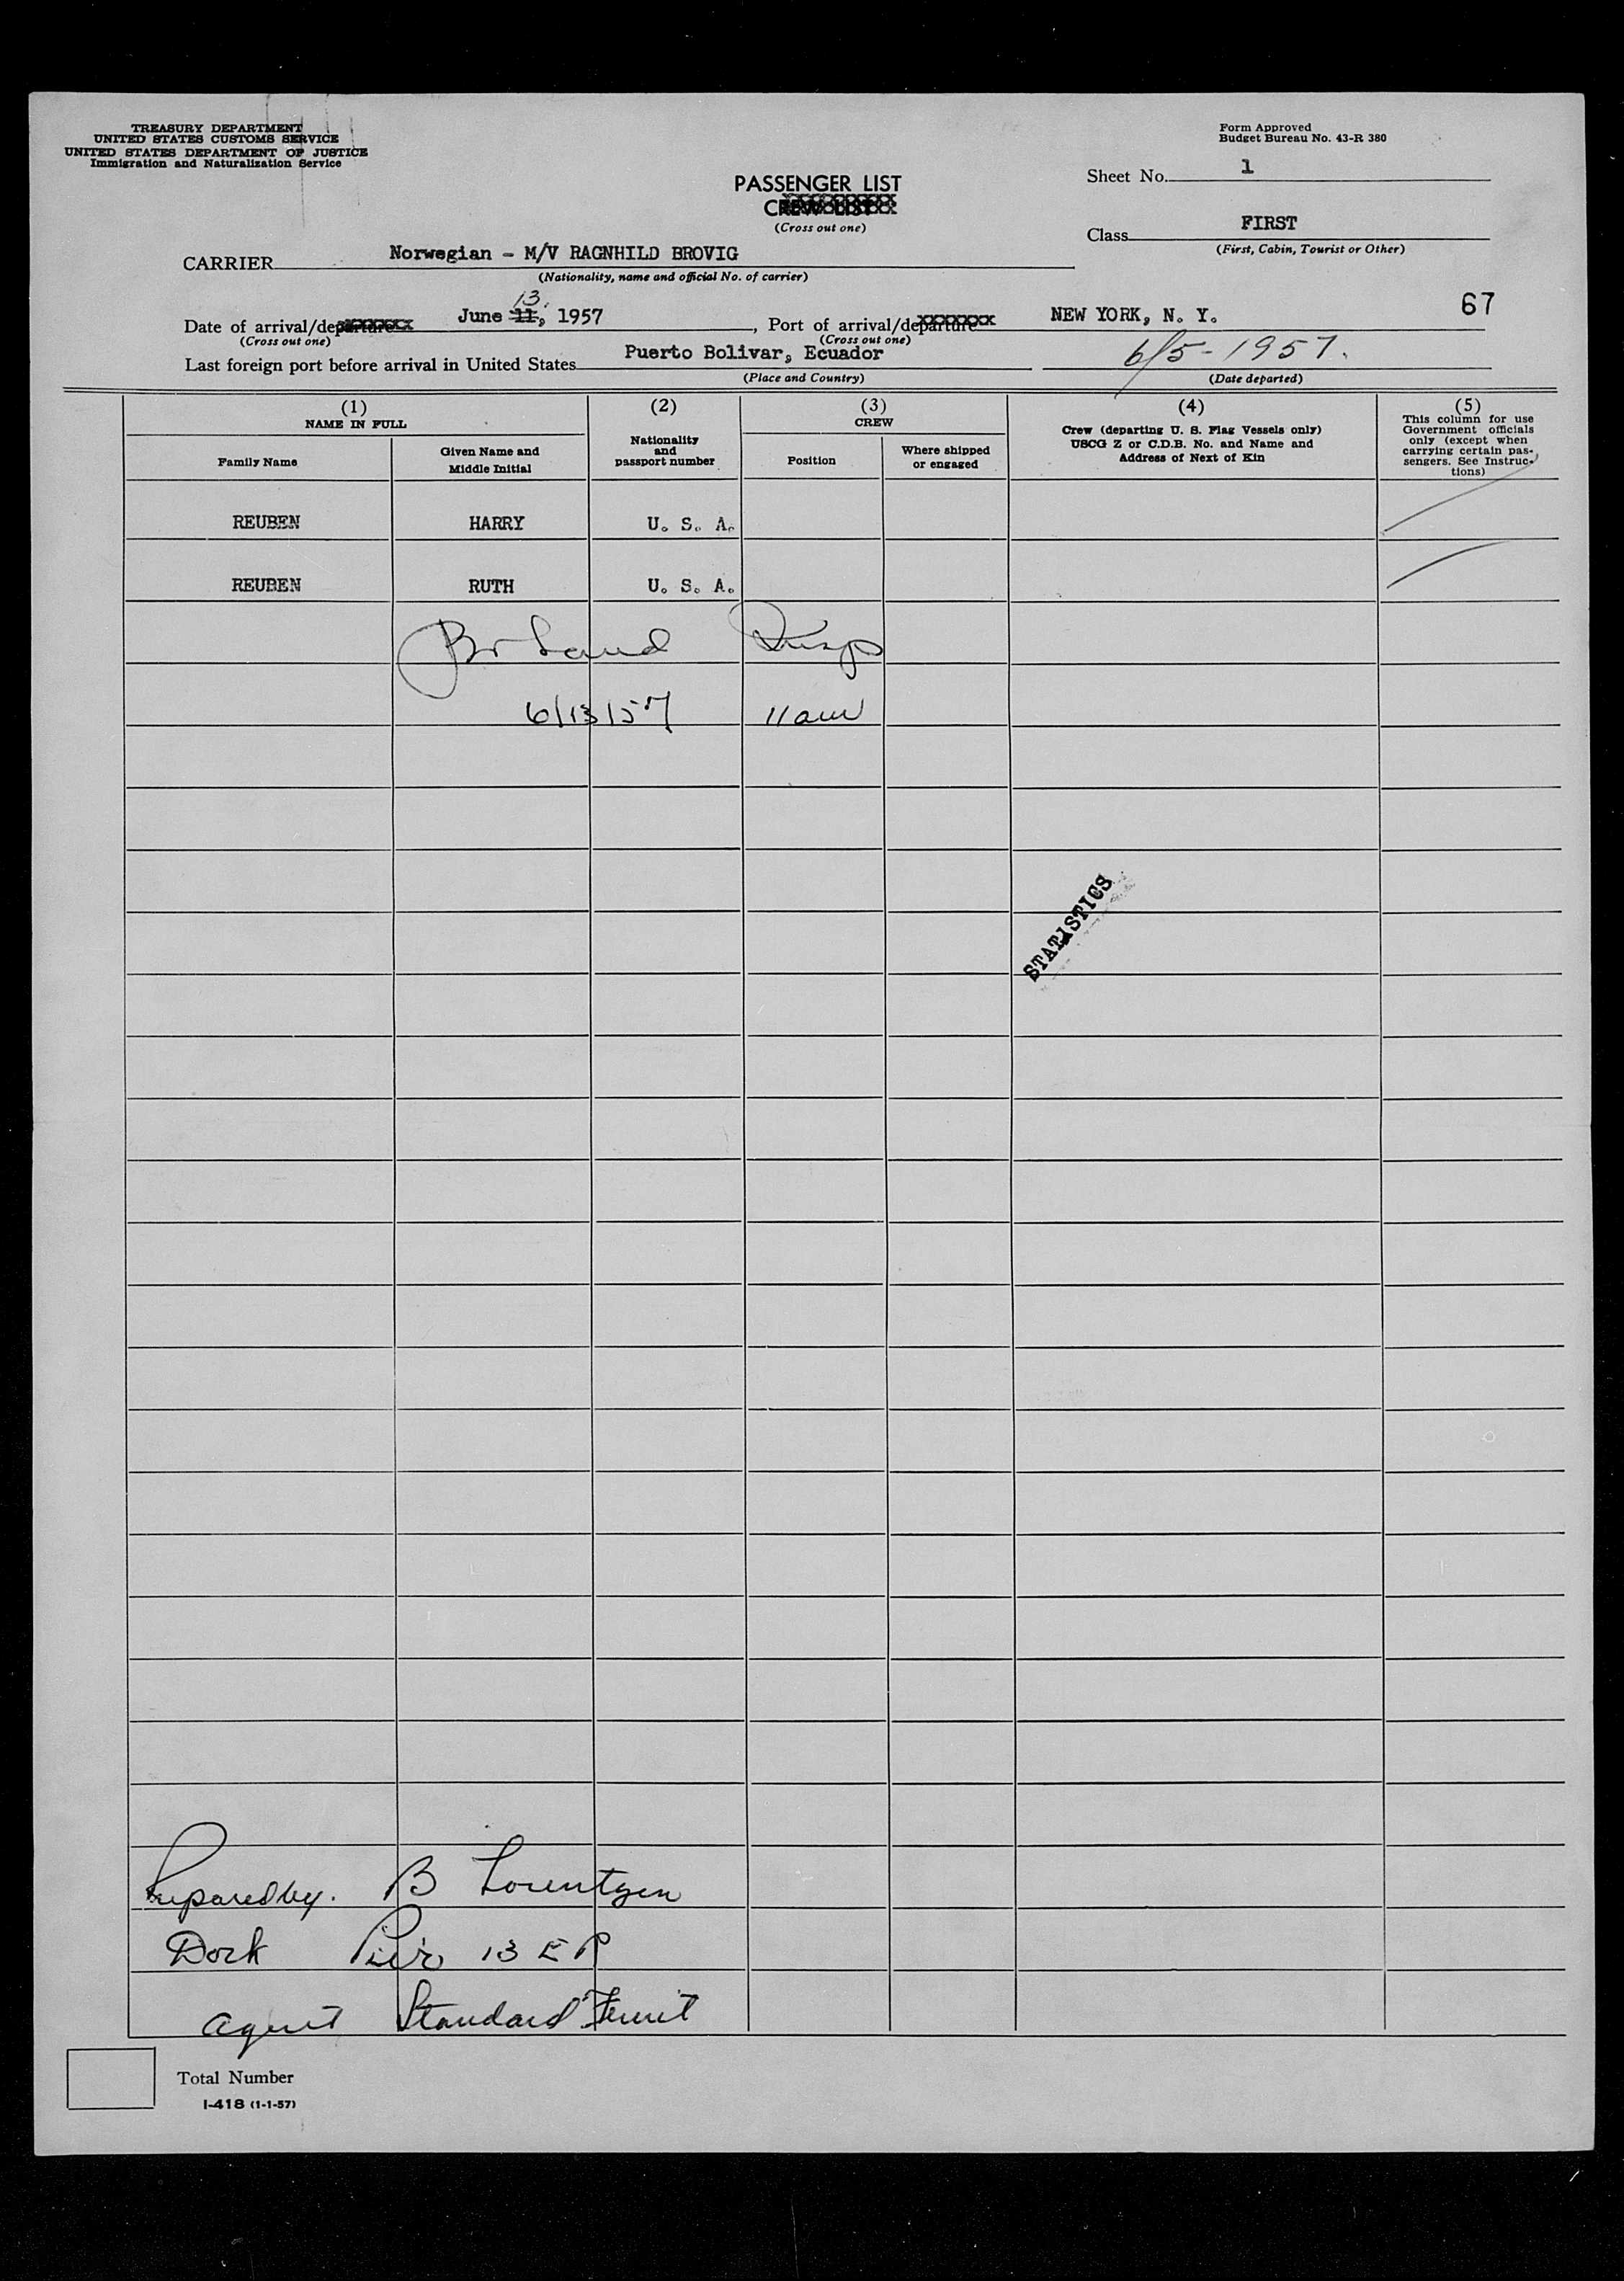 TREASURY DEPARTMENT
UNITED STATES CUSTOMS SERVICE
UNITED STATES DEPARTMENT OF JUSTICE
Immigration and Naturalization Service
Form Approved
Budget Bureau No. 43-R 380
Sheet No. 1
PASSENGER LIST
CREW LIST
(Cross out one)
Class FIRST
(First, Cabin, Tourist or Other)
CARRIER Norwegian - M/V RAGNHILD BROVIG
(Nationality, name and official No. of carrier)
13.
Date of arrival/departure June 11, 1957, Port of arrival/departure NEW YORK, N. Y. 67
(Cross out one) (Cross out one)
Last foreign port before arrival in United States Puerto Bolivar, Ecuador 6/5-1957.
(Place and Country) (Date departed)
(1) (2) (3) (4) (5)
NAME IN FULL
Family Name
Given Name and
Middle Initial
Nationality
and
passport number
CREW
Position
Where shipped
or engaged
Crew (departing U. S. Flag Vessels only)
USCG Z or C.D.B. No. and Name and
Address of Next of Kin
This column for use
Government officials
only (except when
carrying certain pas-
sengers. See Instruc-
tions)
REUBEN HARRY U. S. A.
REUBEN RUTH U. S. A.
6/13/57 11am
STATISTICS
Prepared by. B Lorentzen
Dock Pier 13 E R
Agent Standard Fruit
Total Number
I-418 (1-1-57)